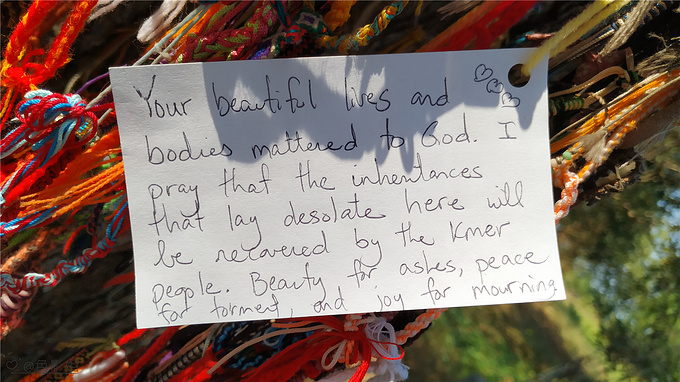 Your beautiful lives and
bodies mattered to God. I
pray that the inheritances
that lay desolate here will
be recovered by the Kmer
people. Beauty for ashes, peace
for torment, and joy for mourning